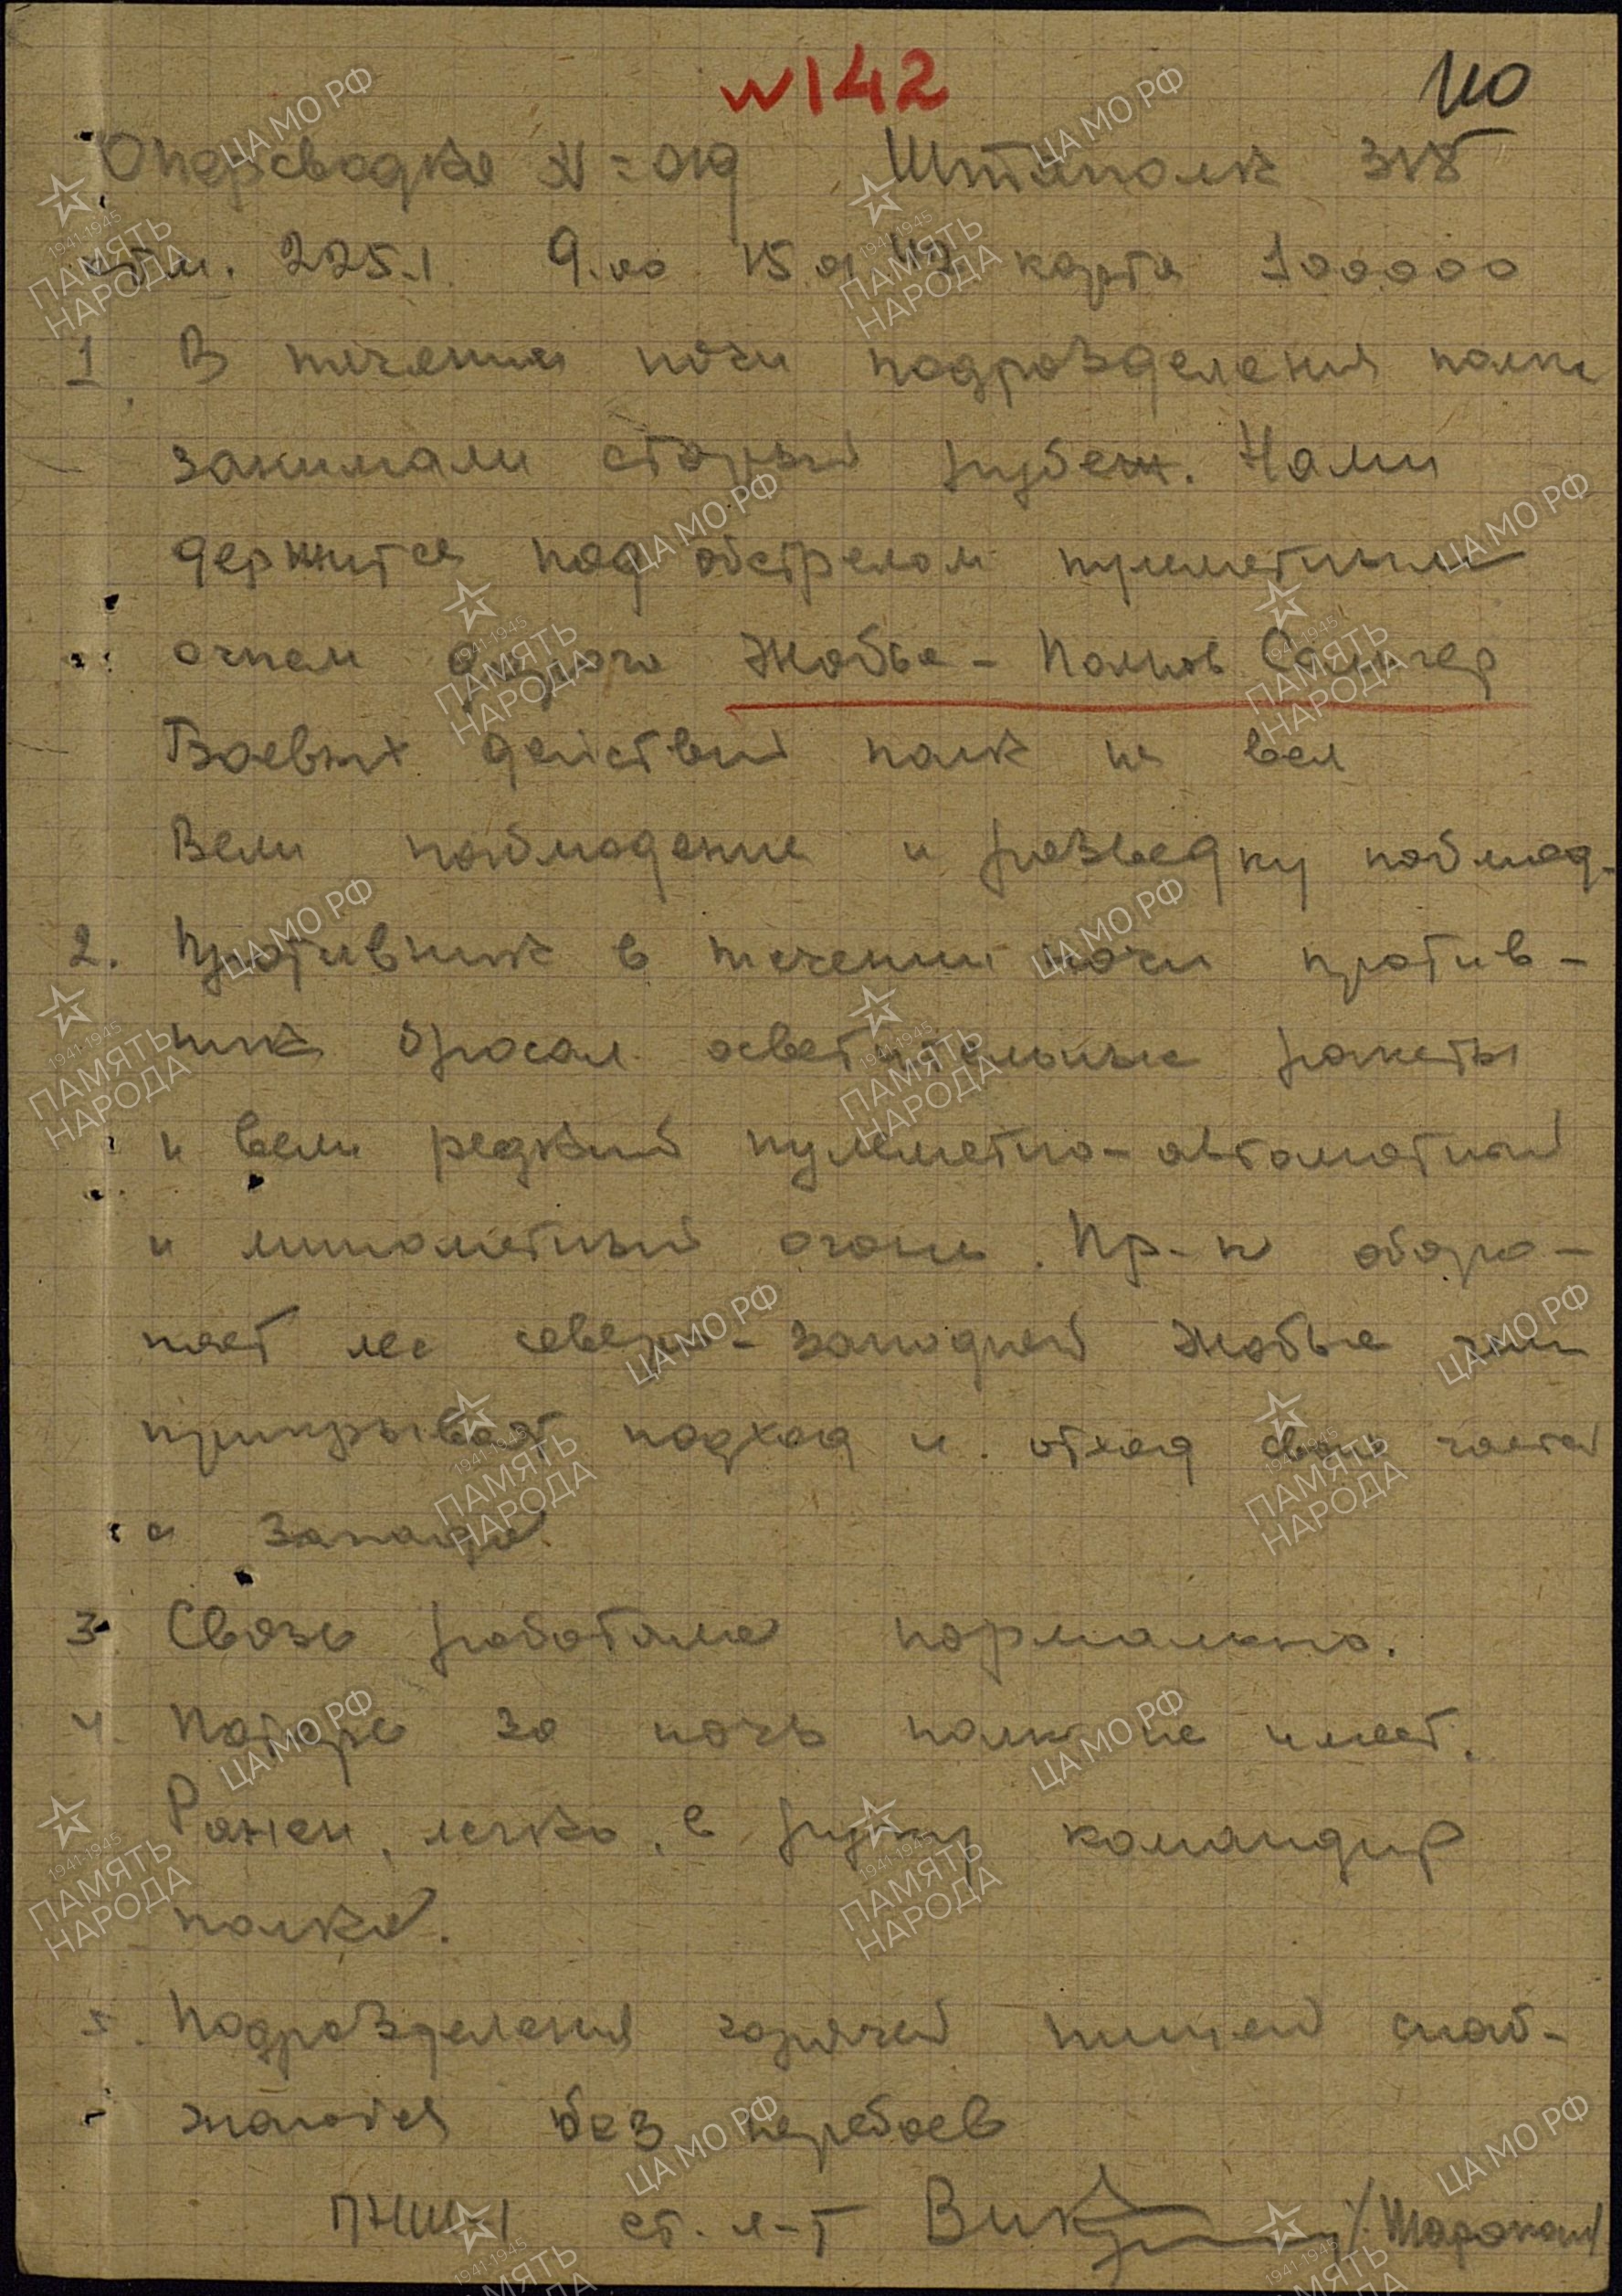 №142
110
Оперсводка № 019 Штаполк 318
отм. 225.1 9.00 15.01.42 карта 100000
1. В течении ночи подразделения полка
занимали старый рубеж. Нами
держится под обстрелом пулеметным
огнем дорога Жабье - Полнов Селигер
Боевых действий полк не вел
Вели наблюдение и разведку наблюд-
2. Противник в течении ночи против-
ник бросал осветительные ракеты
и вели редкий пулеметно-автоматный
и минометный огонь. Пр-к оборо-
няет лес северо-западней Жабье
прикрывает подход и отход своих частей
с запада.
3. Связь работала нормально.
4. Потерь за ночь полк не имеет.
Ранен, легко, в руку командир
полка.
5. Подразделения горячей пищей снаб-
жаются без перебоев
ПНШ-1 ст. л-т